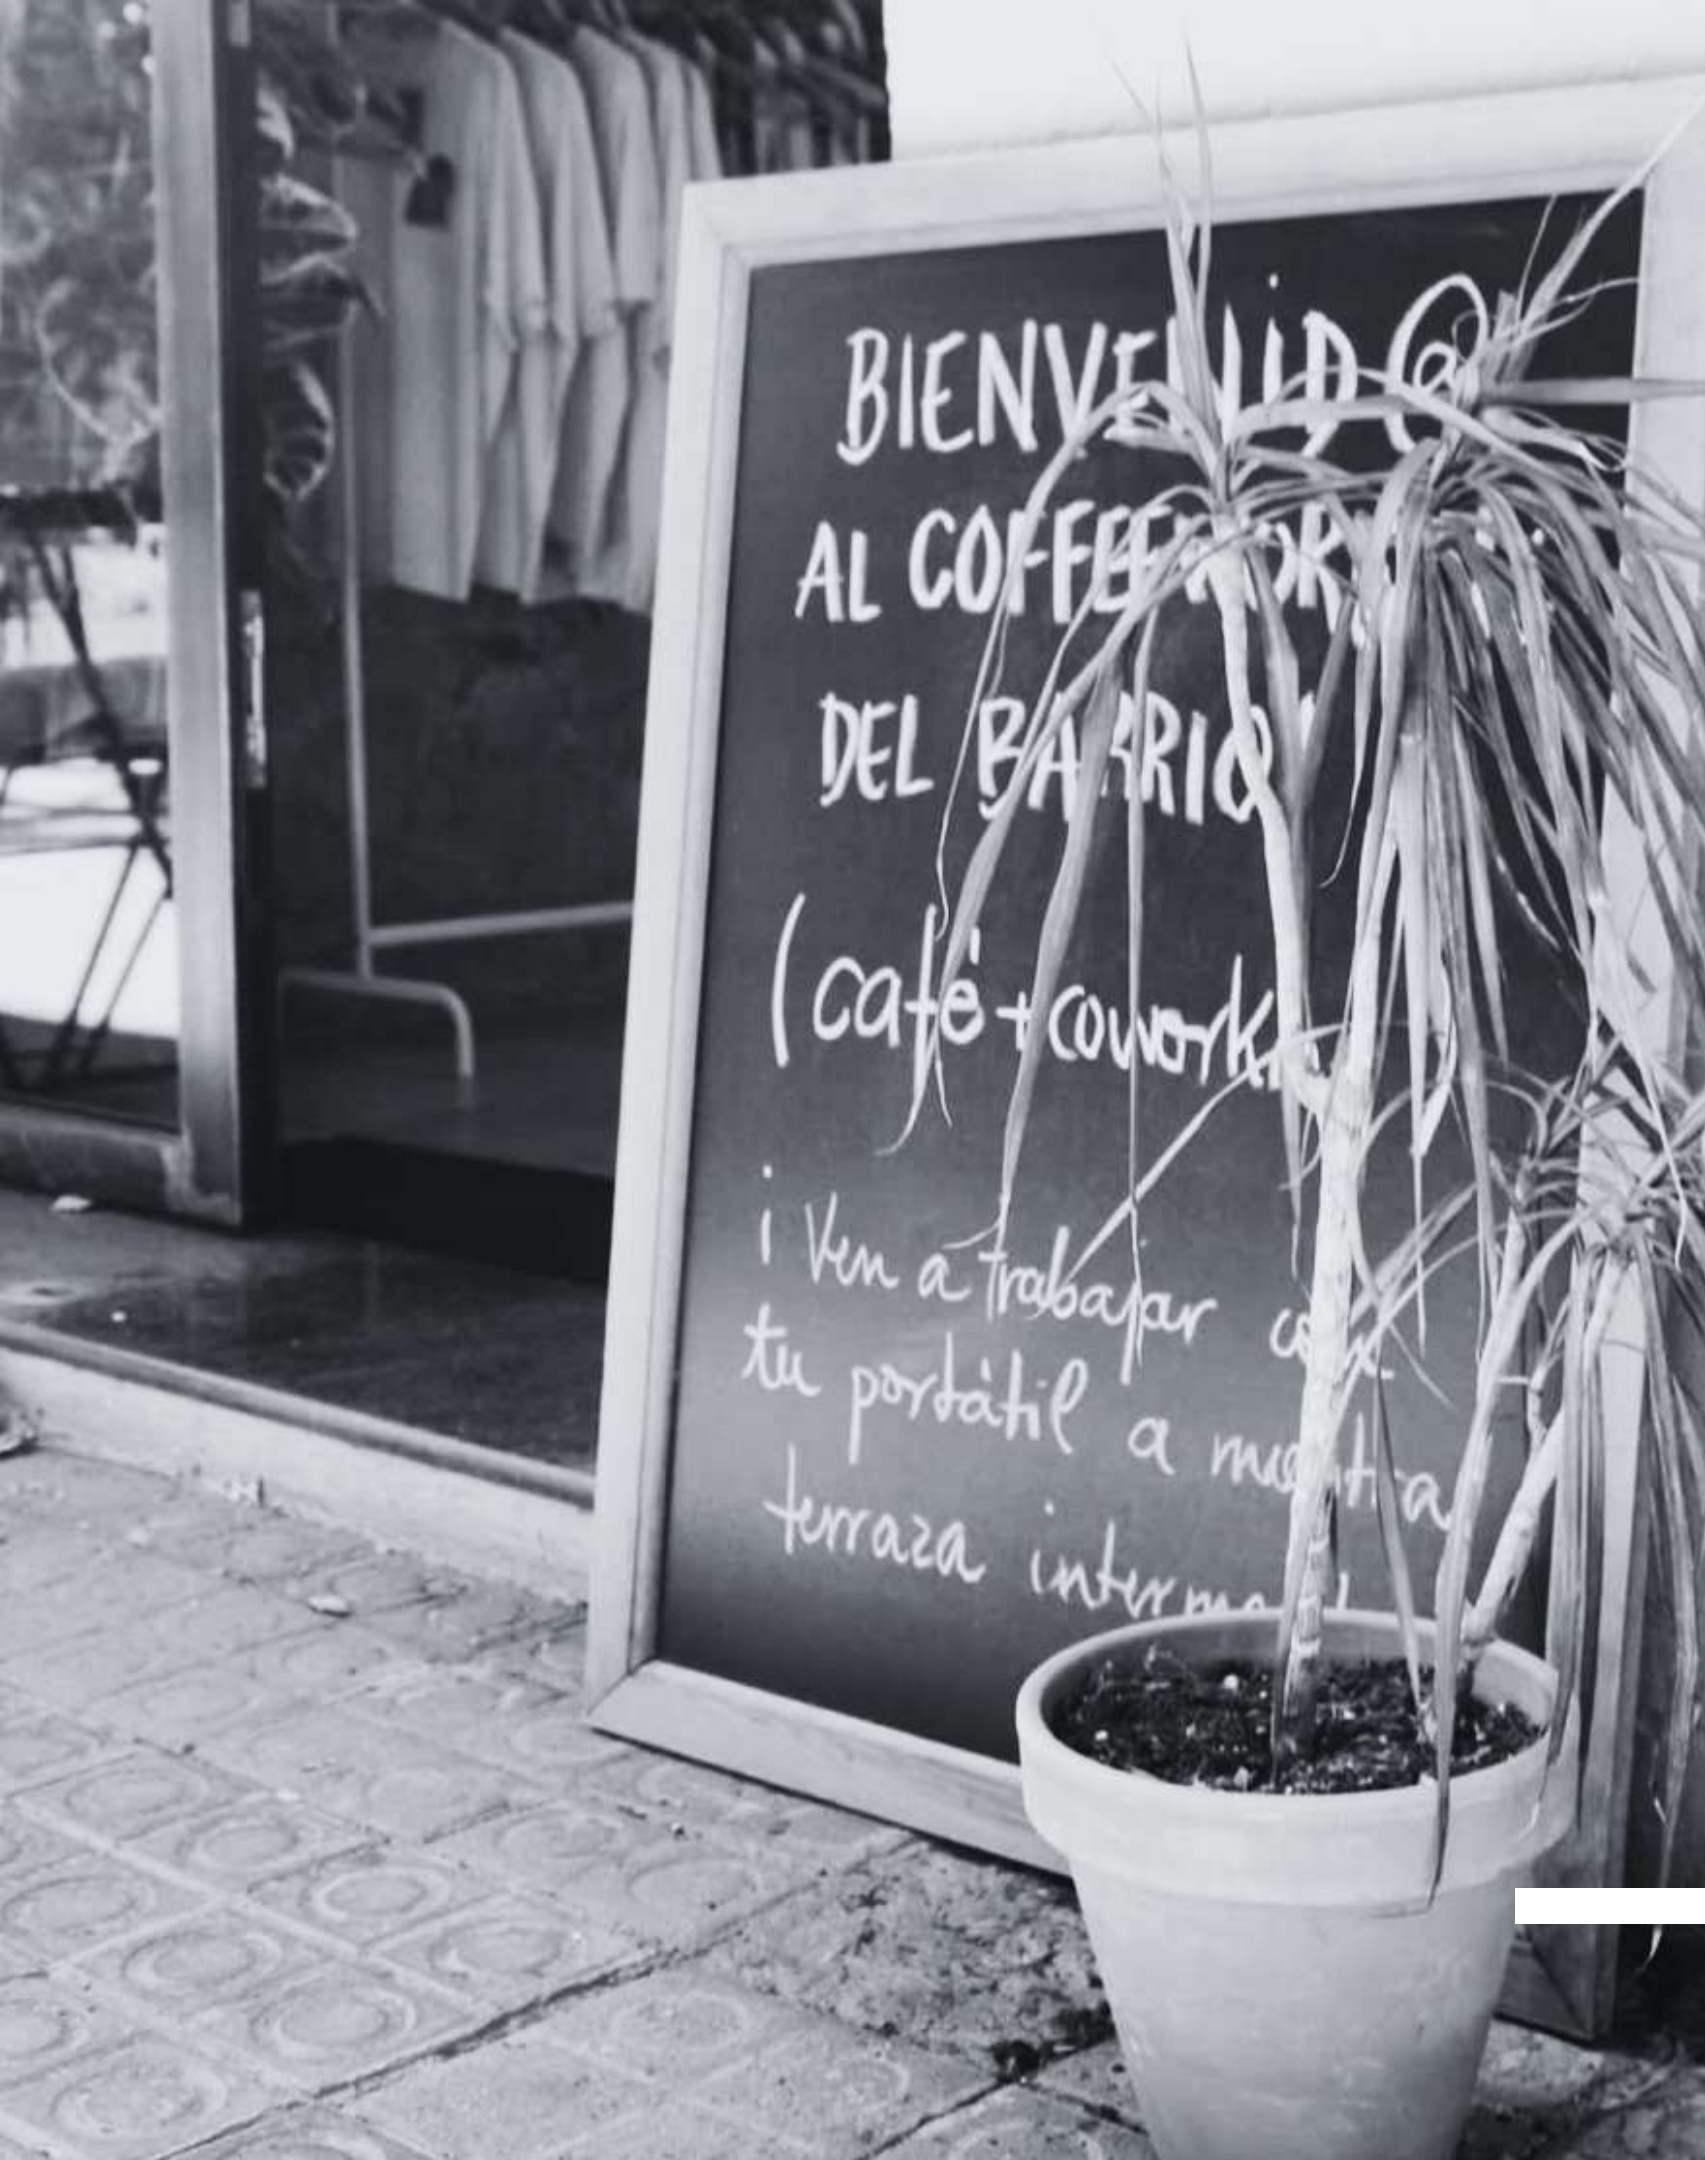 BIENVENID@
AL COFFEEWORK
DEL BARRIO
(café + cowork
¡Ven a trabajar con
tu portátil a nuestra
terraza